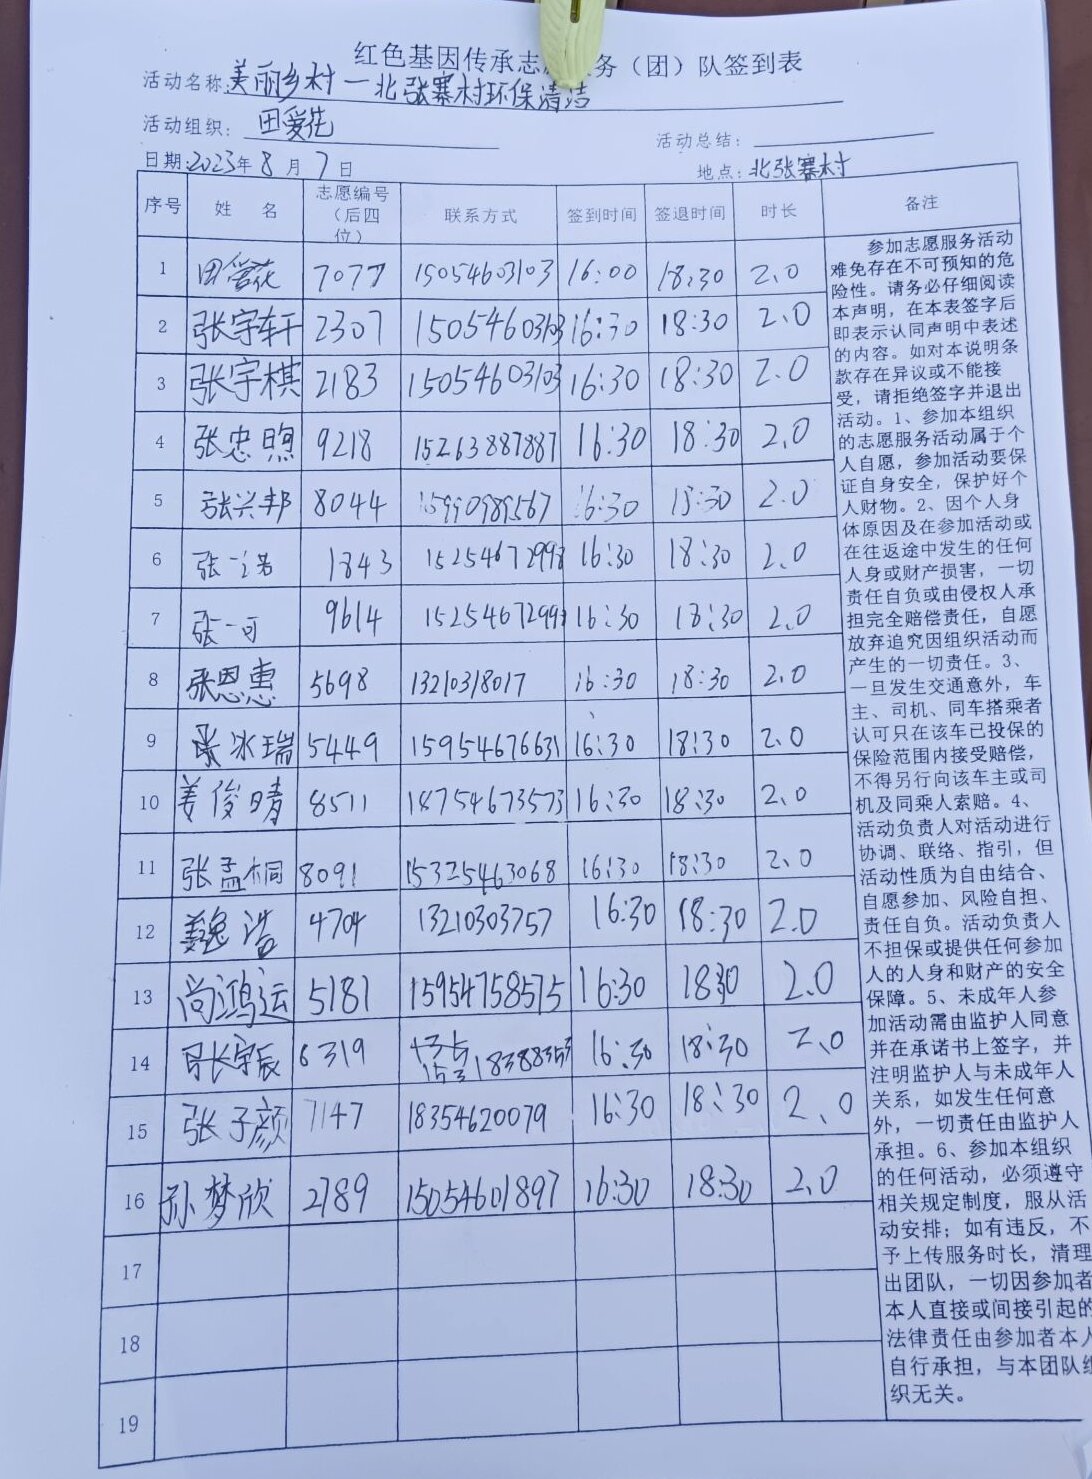 红色基因传承志 务（团）队签到表
活动名称:美丽乡村—北张寨村环保清洁
活动组织: 田爱花
活动总结:
日期:2023年8月7日
地点:北张寨村
序号 姓 名 志愿编号（后四位） 联系方式 签到时间 签退时间 时长 备注
1 田爱花 7077 15054603103 16:00 18:30 2.0
2 张宇轩 2307 15054603103 16:30 18:30 2.0
3 张宇棋 2183 15054603103 16:30 18:30 2.0
4 张忠煦 9218 15263887887 16:30 18:30 2.0
5 张兴邦 8044 15990989567 16:30 18:30 2.0
6 张一诺 1843 15254672998 16:30 18:30 2.0
7 张一可 9614 1525467299 16:30 18:30 2.0
8 张恩惠 5698 13210318017 16:30 18:30 2.0
9 张冰瑞 5449 15954676631 16:30 18:30 2.0
10 姜俊晴 8511 18754673573 16:30 18:30 2.0
11 张孟桐 8091 15325463068 16:30 18:30 2.0
12 浩 4704 13210303757 16:30 18:30 2.0
13 尚鸿运 5181 15954758575 16:30 18:30 2.0
14 宇辰 6319 16:30 18:30 2.0
15 张子颜 7147 18354620079 16:30 18:30 2.0
16 孙梦欣 2789 15054601897 16:30 18:30 2.0
17
18
19
参加志愿服务活动
难免存在不可预知的危
险性。请务必仔细阅读
本声明，在本表签字后
即表示认同声明中表述
的内容。如对本说明条
款存在异议或不能接
受，请拒绝签字并退出
活动。1、参加本组织
的志愿服务活动属于个
人自愿，参加活动要保
证自身安全，保护好个
人财物。2、因个人身
体原因及在参加活动或
在往返途中发生的任何
人身或财产损害，一切
责任自负或由侵权人承
担完全赔偿责任，自愿
放弃追究因组织活动而
产生的一切责任。3、
一旦发生交通意外，车
主、司机、同车搭乘者
认可只在该车已投保的
保险范围内接受赔偿，
不得另行向该车主或司
机及同乘人索赔。4、
活动负责人对活动进行
协调、联络、指引，但
活动性质为自由结合、
自愿参加、风险自担、
责任自负。活动负责人
不担保或提供任何参加
人的人身和财产的安全
保障。5、未成年人参
加活动需由监护人同意
并在承诺书上签字，并
注明监护人与未成年人
关系，如发生任何意
外，一切责任由监护人
承担。6、参加本组织
的任何活动，必须遵守
相关规定制度，服从活
动安排；如有违反，不
予上传服务时长，清理
出团队，一切因参加者
本人直接或间接引起的
法律责任由参加者本人
自行承担，与本团队组
织无关。